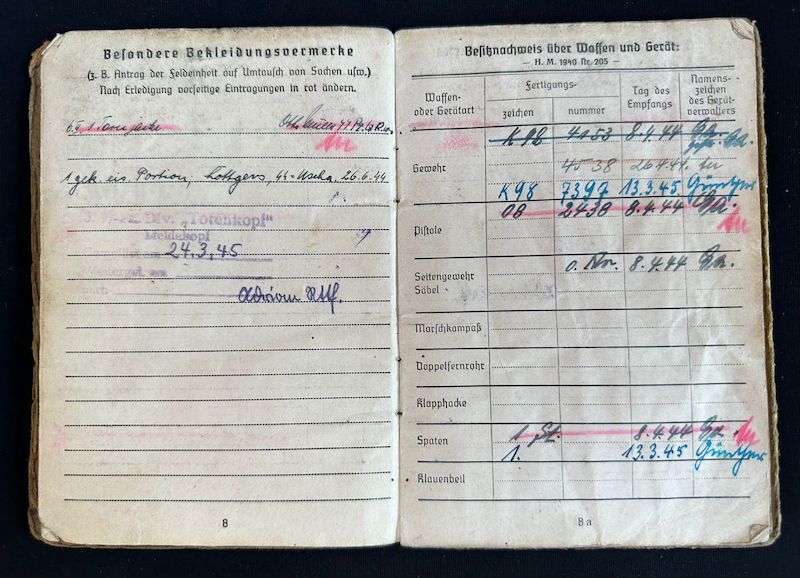 Besondere Bekleidungsvermerke
(z. B. Antrag der Feldeinheit auf Umtausch von Sachen usw.)
Nach Erledigung vorseitige Eintragungen in rot ändern.
1 Tarnjacke
1 gek. eis. Portion, Lottgers, 44-Uscha. 26.6.44
Div. „Totenkopf"
Meldekopf
24.3.45
8
Besitznachweis über Waffen und Gerät:
— H. M. 1940 Nr. 205 —
Waffen- oder Gerätart
Fertigungs-
zeichen
nummer
Tag des Empfangs
Namens-zeichen des Gerät-verwalters
K 98 4153 8.4.44
Gewehr 4538
K98 7397 13.3.45 Günther
08 2438 8.4.44
Pistole
Seitengewehr o. Nr. 8.4.44
Säbel
Marschkompaß
Doppelfernrohr
Klapphacke
Spaten 1 St. 8.4.44
1. 13.3.45 Günther
Klauenbeil
8a